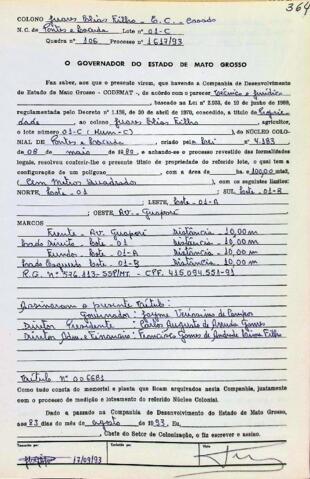 364
COLONO Juares Elias Filho - E. C. - Casado
N. C. de Pontes e Lacerda Lote nº 01-C
Quadra nº 106 Processo nº 1617/93
O GOVERNADOR DO ESTADO DE MATO GROSSO
Faz saber, aos que o presente virem, que havendo a Companhia de Desenvolvimento
do Estado de Mato Grosso - CODEMAT -, de acordo com o parecer
, baseado na Lei nº 2.933, de 10 de junho de 1969,
regulamentada pelo Decreto nº 1.138, de 20 de abril de 1970, concedido, a título de Proprie
dade, ao colono Juares Elias Filho, agricultor,
o lote número 01-C (Hum-C) do NÚCLEO COLO-
NIAL DE Pontes e Lacerda, criado pela Lei nº 4.183
de 08 de maio de 1980, e achando-se o processo revestido das formalidades
legais, resolveu conferir-lhe o presente título de propriedade do referido lote, o qual tem a
configuração de um polígono, com a área de ha 100,00 mts²
(Cem Metros Quadrados) com os seguintes limites:
NORTE, Lote - 01; SUL, Lote - 01-A
; LESTE, Lote - 01-B
; OESTE, Av. Guaporé
MARCOS
Frente - Av. Guaporé Distância - 10,00 m
Lado Direito - Lote - 01 Distância - 10,00 m
Fundos - Lote - 01-A Distância - 10,00 m
Lado Esquerdo - Lote - 01-B Distância - 10,00 m
R. G. Nº 576.113-SSP/MT. - CPF. 415.094.551-91
Assinaram o presente título:
Governador: Jayme Veríssimo de Campos
Diretor Presidente: Carlos Augusto de Arruda Gomes
Diretor Adm. e Financeiro: Francisco Gomes de Andrade Lima Filho
Título nº 006681
Como tudo consta do memorial e planta que ficam arquivados nesta Companhia, juntamente
com o processo de medição e loteamento do referido Núcleo Colonial.
Dado e passado na Companhia de Desenvolvimento do Estado de Mato Grosso,
aos 23 dias do mês de agosto de 1993. Eu,
, Chefe do Setor de Colonização, o fiz escrever e assino.
Conferido Visto
17/09/93